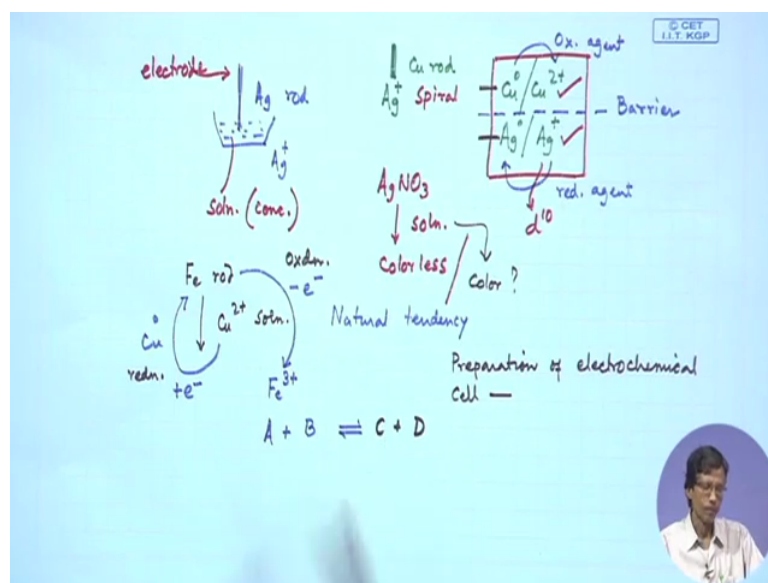 © CET
I.I.T. KGP
electrode
Ag rod
Ag⁺
soln. (conc.)
Cu rod
Ag⁺ Spiral
Ox. agent
Cu⁰ / Cu²⁺
Barrier
Ag⁰ / Ag⁺
red. agent
d¹⁰
AgNO₃
soln.
Colorless
Color ?
Natural tendency
Fe rod
oxdn.
-e⁻
Cu²⁺ soln.
Cu⁰
redn.
+e⁻
Fe³⁺
Preparation of electrochemical
Cell —
A + B ⇌ C + D